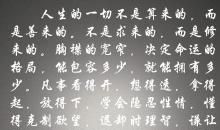 人生的一切不是算来的，而
是善来的，不是求来的，而是修
来的。胸襟的宽窄，决定命运的
格局，能包容多少，就能拥有多
少，凡事看得开，想得透，拿得
起，放得下，学会隐忍性情，懂
得克制欲望，退却时理智，谦让